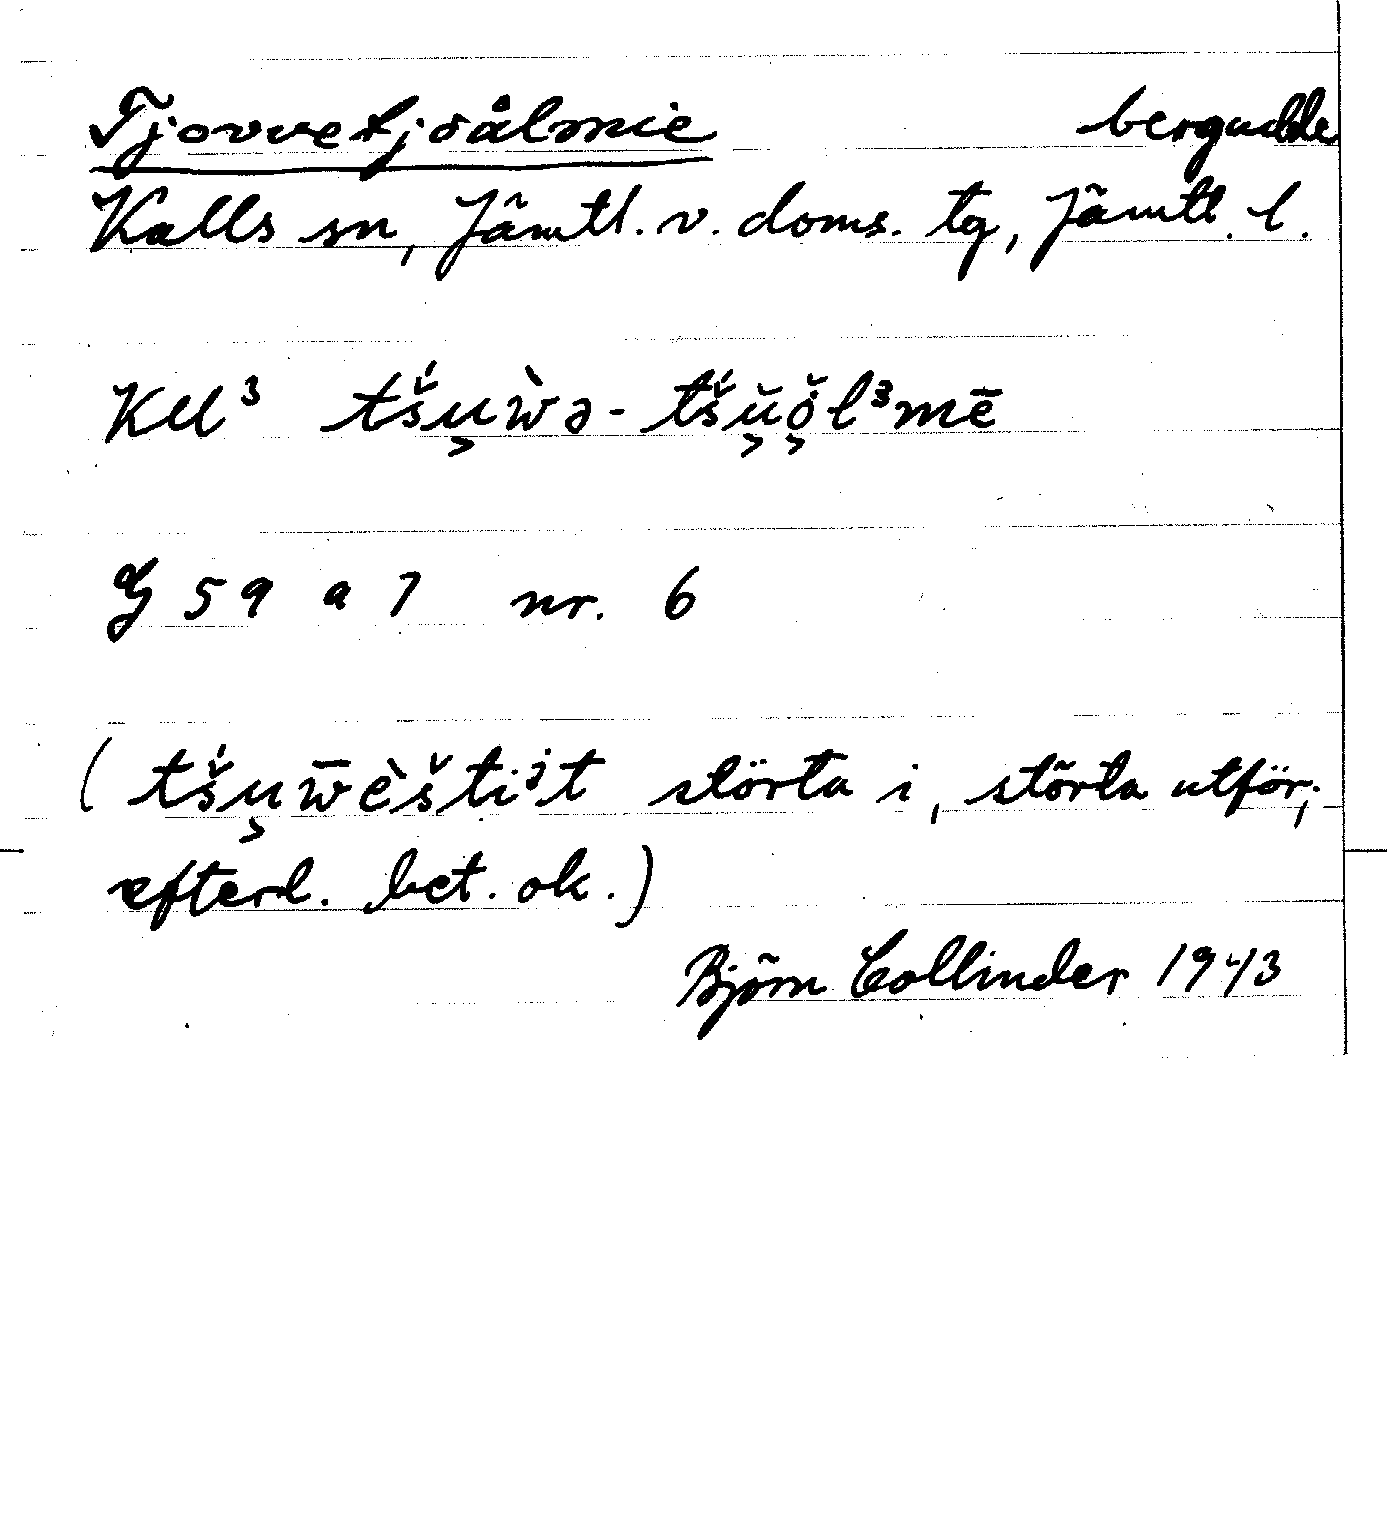 Tjovvetjoålmie bergudde
Kalls sn, Jämtl. v. doms. tg, Jämtl. l.
Kll³ tš́u̬ẁə-tš́ŭ̬ŏ̬l³mē
G 59 a 7 nr. 6
(tš́u̬w̄èšti³t störta i, störta utför;
efterl. bet. ok.)
Björn Collinder 1943